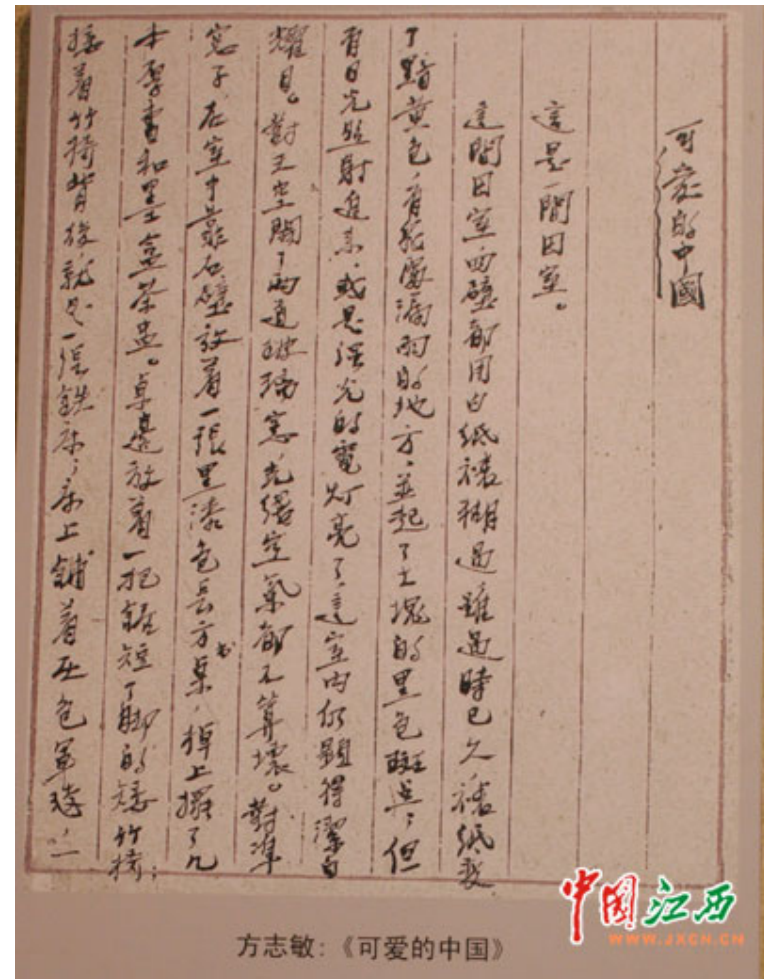 可愛的中國
這是一間囚室。
這間囚室,四壁都用白紙裱糊過,雖過時已久,裱紙變
了黯黃色,有幾處漏雨的地方,並起了大塊的黑色斑點;但
有日光照射進來,或是强光的電灯亮了,這室內仍顯得潔白
耀目。對天空開了兩道玻璃窗,光線空氣都不算壞。對準
窓子,在室中靠石壁放着一張黑漆色長方書桌,棹上擺了几
本厚書和墨盒茶盅。桌邊放着一把鋸短了脚的矮竹椅;
接着竹椅背後,就是一張鉄床;床上鋪着灰色軍毯,一
中国江西
WWW.JXCN.CN
方志敏:《可爱的中国》